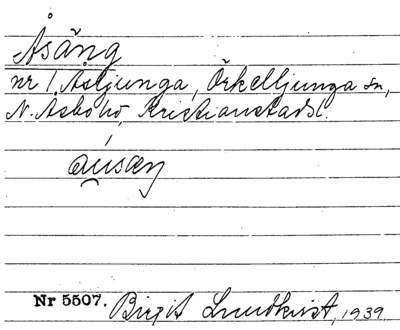 Åsäng
nr 1 Åsljunga, Örkelljunga sn,
N. Åsbo hd, Kristianstads l.
Nr 5507. Birgit Lundkvist, 1939